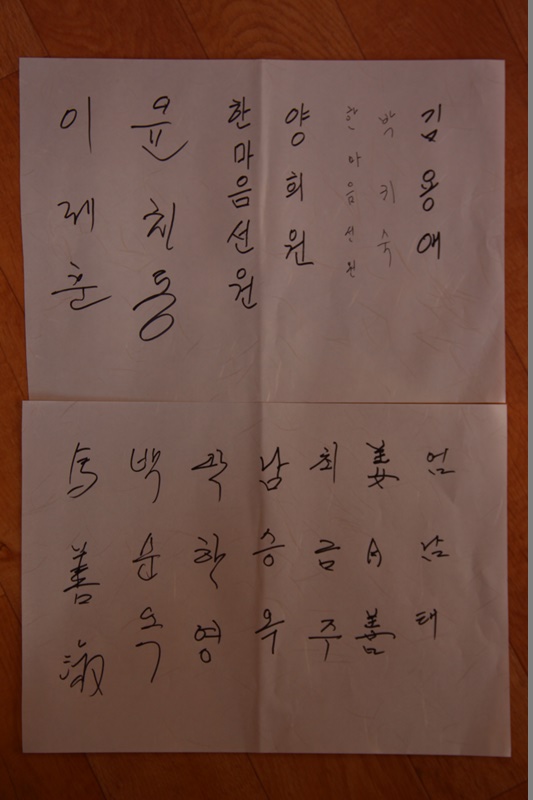 김용애
박키숙
한마음선원
양희원
한마음선원
윤친동
이레춘
엄남태
姜善
최금주
남승옥
곽학영
백순옥
善